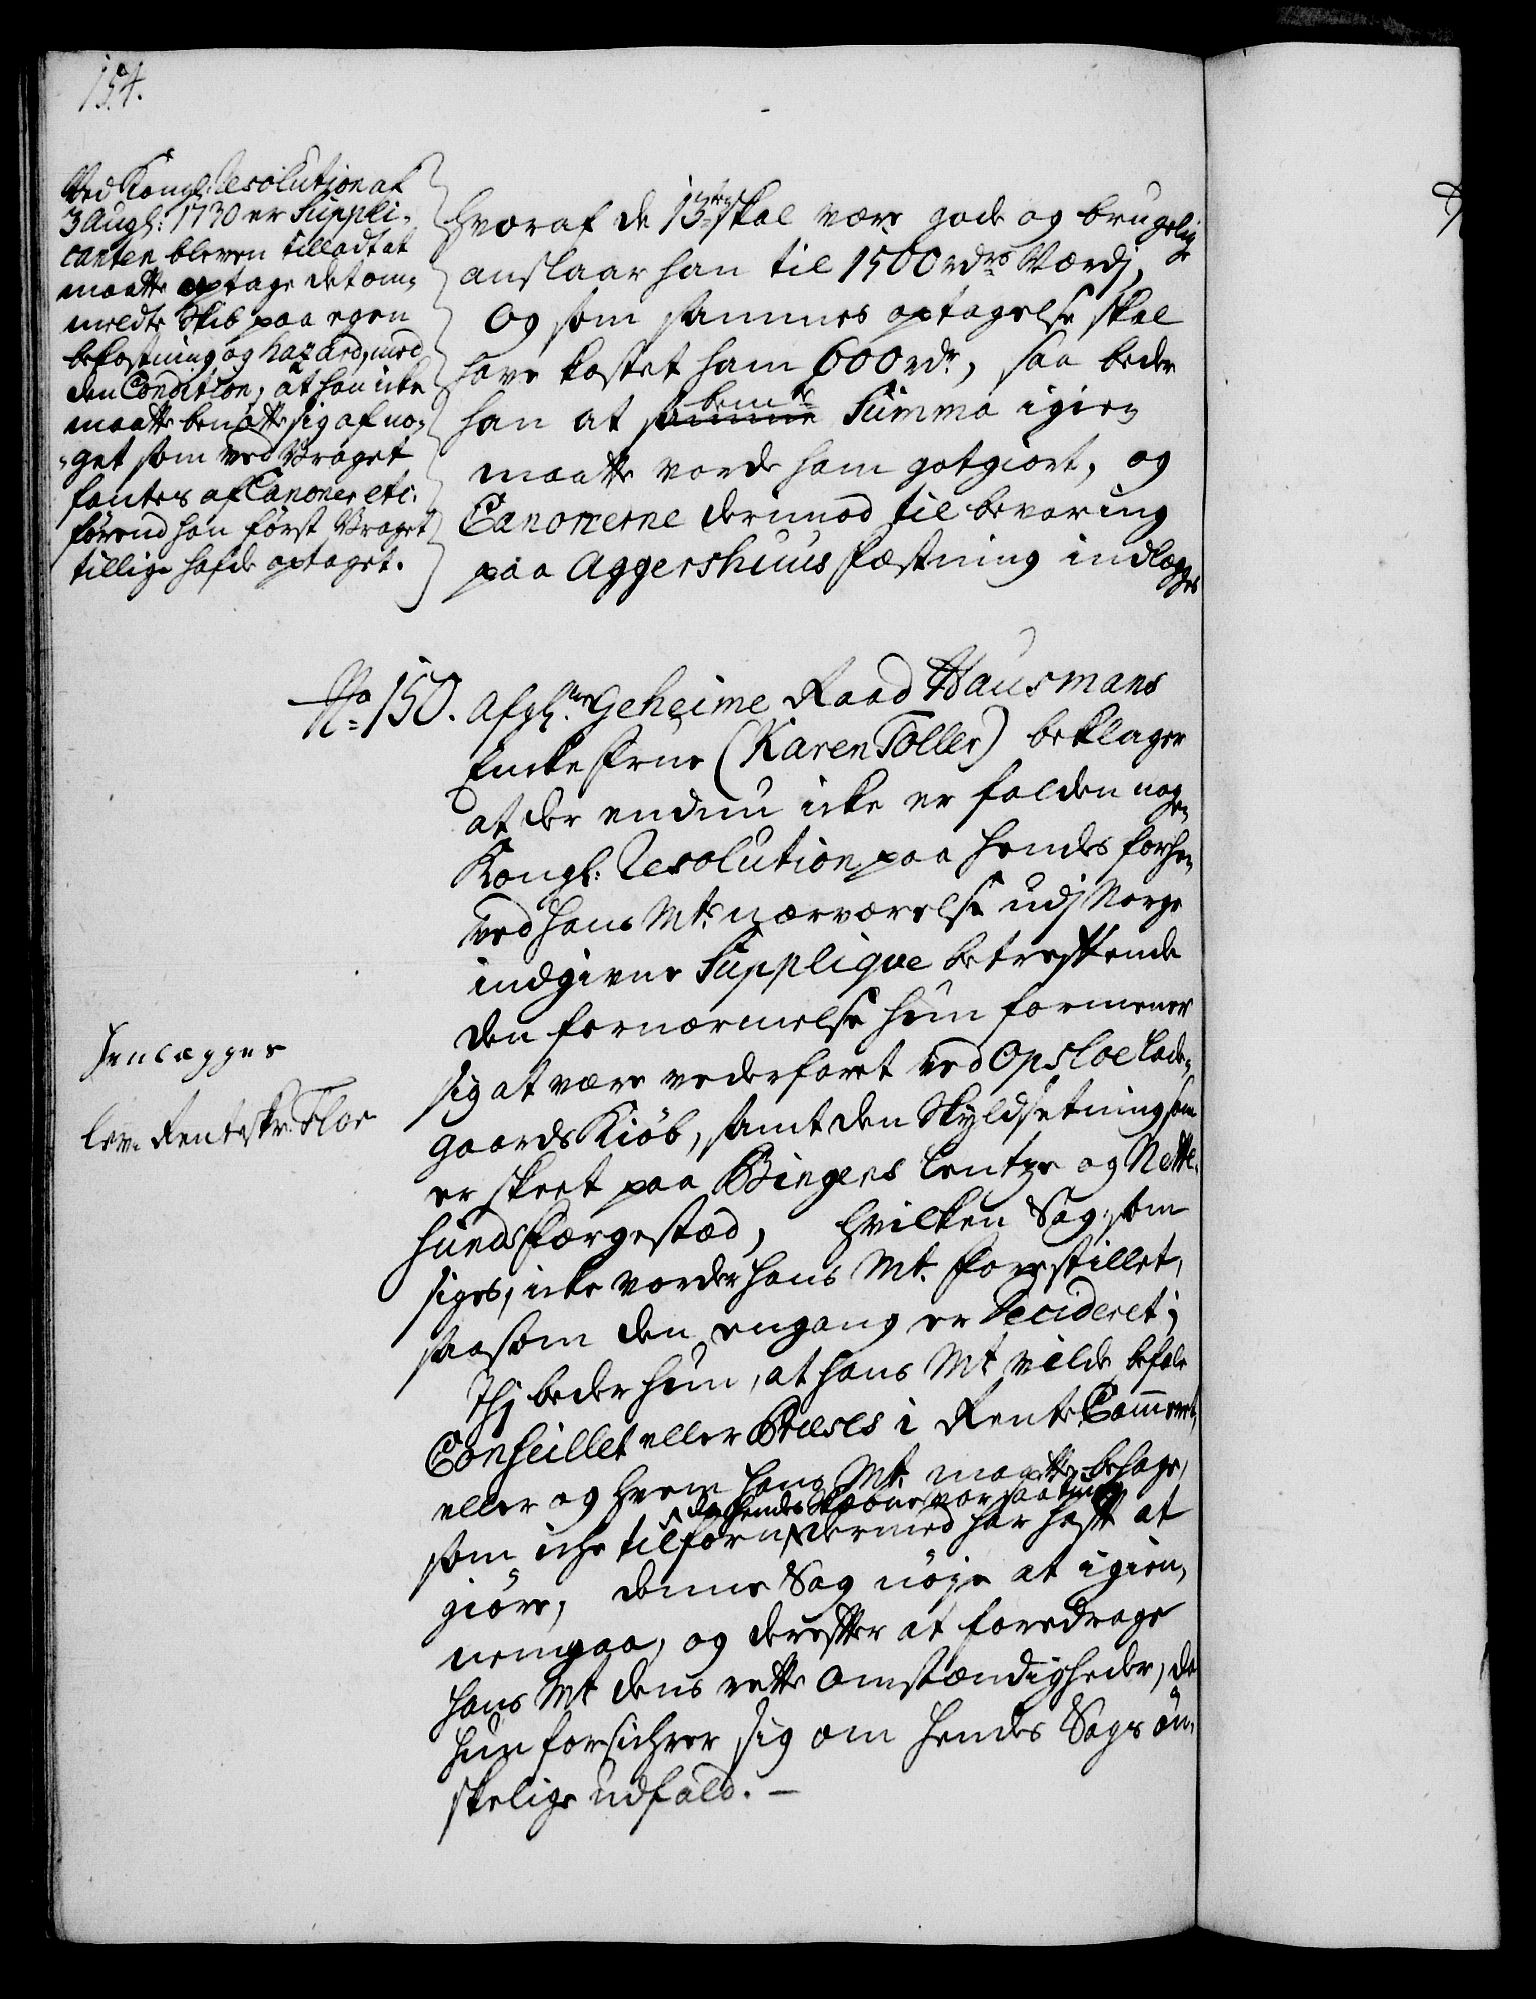 154.
Ved Kongl: Resolution af
3 Augl: 1730 er Suppli-
canten bleven tilladt at
maatte optage det om-
meldte Skib paa egen
bekostning og hazard, med
den Condition, at han icke
maatte benøtte sig af no-
get som ved Vraget
fantes af Canoner etc:
førend han først Vraget
tillige hafde optaget.
hvoraf de 13ten skal være gode og brugelige
anslaar han til 1500 rdrs Værdj,
Og som sammes optagelse skal
have kostet ham 600 rdr, saa beder
han at samme bemte Summa igien
maatte vorde ham gotgiort, og
Canonerne derimod til bevaring
paa Aggershuus Fæstning indlægges
No 150. Afgl: Geheime Raad Hausmans
Encke Frue (Karen Toller) beklager
at der endnu icke er falden nogen
Kongl: Resolution paa hendes forhen
ved hans Mts nærværelse udj Norge
indgivne Supplique betreffende
den fornærmelse hun formener
sig at være vederfaret ved Opsloe Lade-
gaards Kiøb, samt den Skyldsetning som
er skeet paa Bingens Lentze og Nette-
hunds Færgestæd, hvilken Sag, som
siges, icke vorder hans Mt. forestillet,
saasom den engang er Decideret;
Thj beder hun, at hans Mt vilde befale
Conseillet eller Præses i Rente Cammeret,
eller og hvem hans Mt. maatte behage,
da hendes Skæbne var saa
som iche tilforn dermed har hafft at
giøre, denne Sag nøje at igien-
nemgaa, og derefter at foredrage
hans Mt dens rette Omstændigheder, da
hun forsichrer sig om hendes Sags øn-
skelige udfald. -
Henlægges
lev. Renteskr: Floer